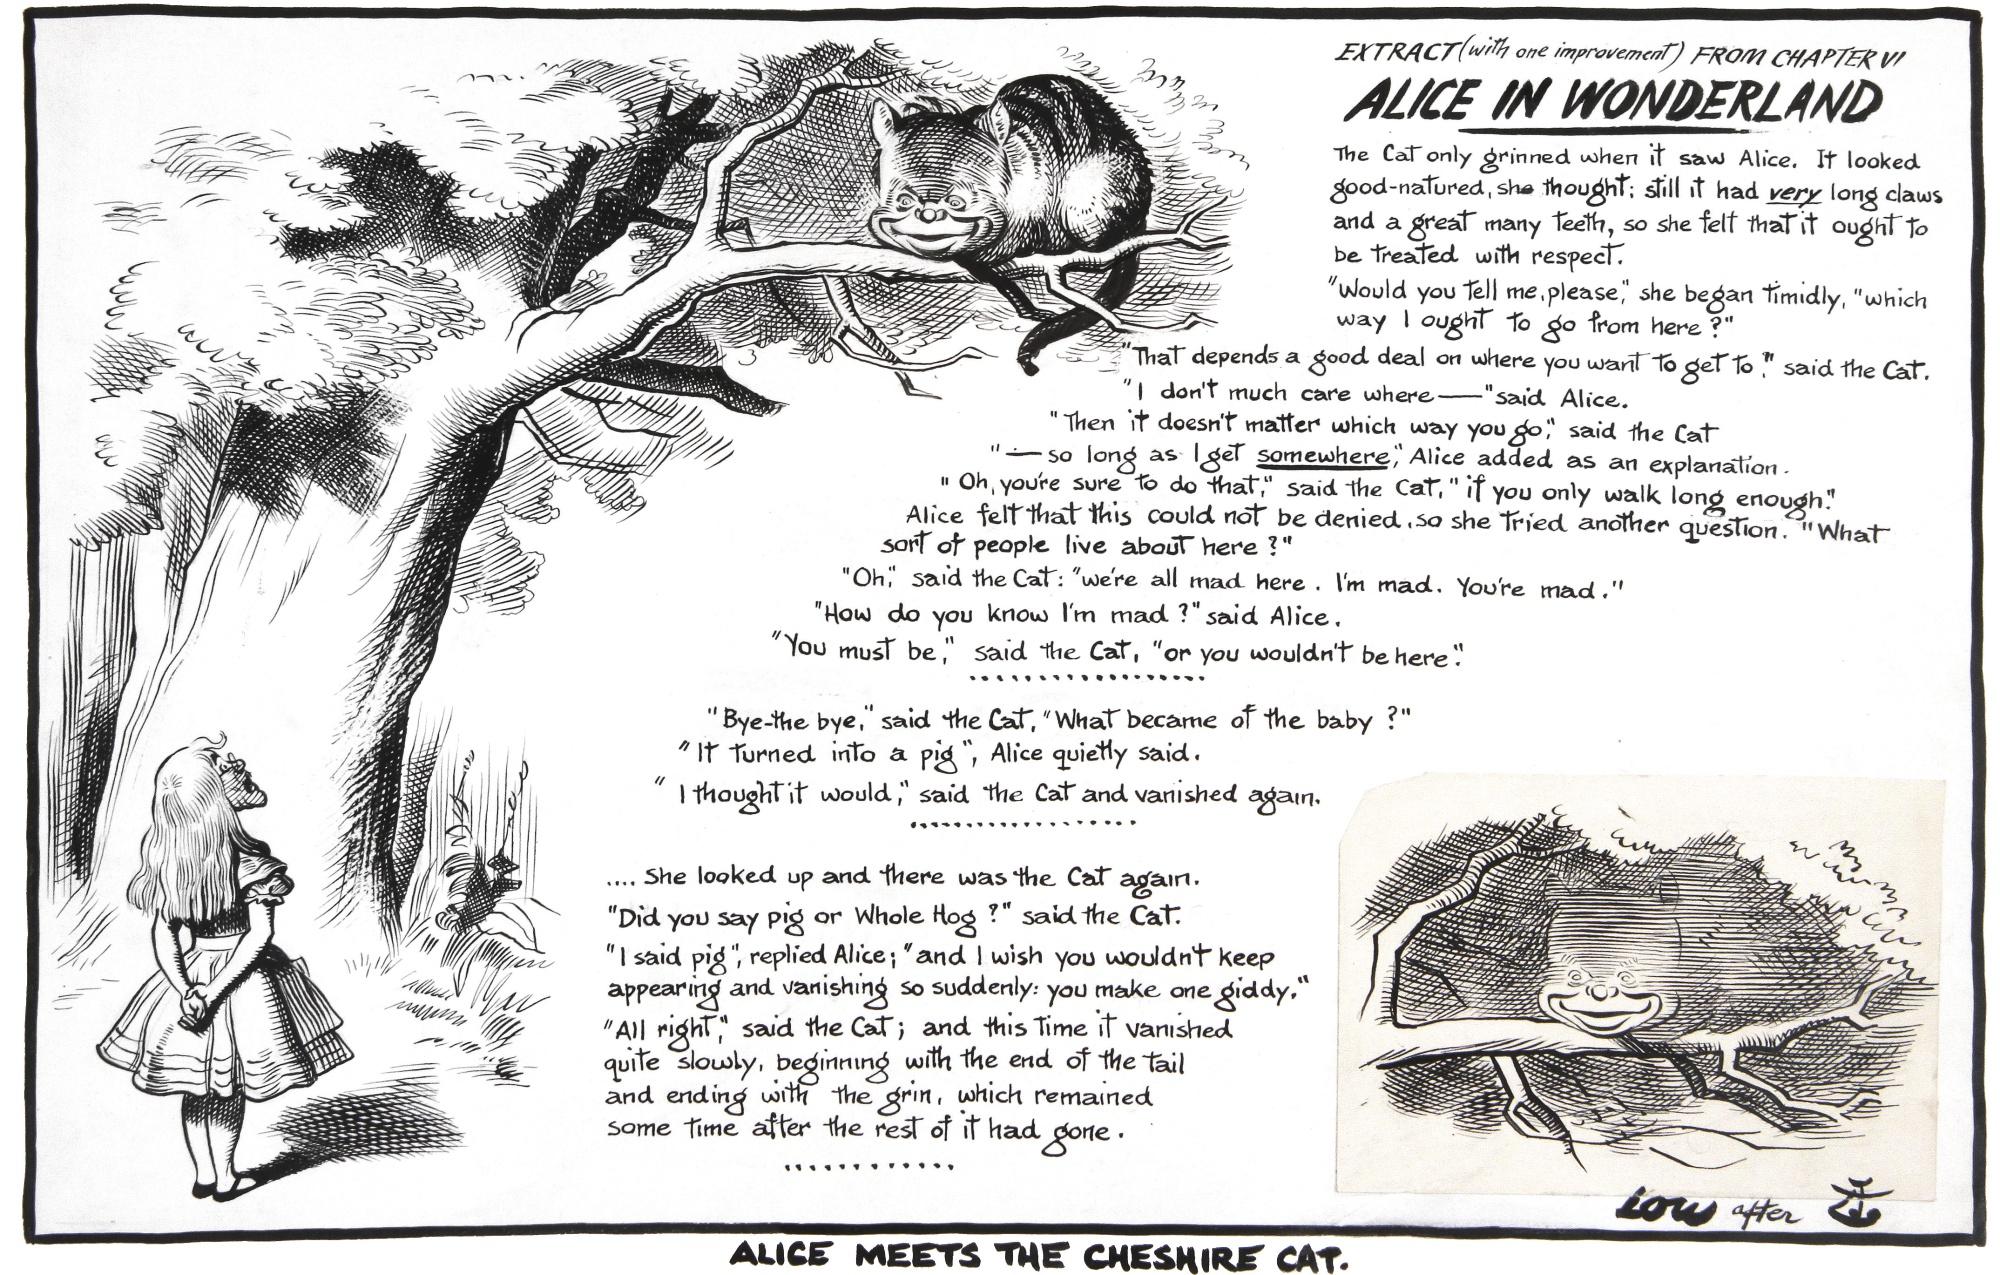 EXTRACT (with one improvement) FROM CHAPTER VI
ALICE IN WONDERLAND
The Cat only grinned when it saw Alice. It looked
good-natured, she thought: still it had very long claws
and a great many teeth, so she felt that it ought to
be treated with respect.
"Would you tell me, please," she began timidly, "which
way I ought to go from here?"
"That depends a good deal on where you want to get to," said the Cat.
"I don't much care where—" said Alice.
"Then it doesn't matter which way you go," said the Cat
"— so long as I get somewhere," Alice added as an explanation.
"Oh, you're sure to do that," said the Cat, "if you only walk long enough."
Alice felt that this could not be denied, so she tried another question. "What
sort of people live about here?"
"Oh," said the Cat: "we're all mad here. I'm mad. You're mad."
"How do you know I'm mad?" said Alice.
"You must be," said the Cat, "or you wouldn't be here."
"Bye-the bye," said the Cat, "What became of the baby?"
"It turned into a pig", Alice quietly said.
"I thought it would," said the Cat and vanished again.
.... She looked up and there was the Cat again.
"Did you say pig or Whole Hog?" said the Cat.
"I said pig", replied Alice; "and I wish you wouldn't keep
appearing and vanishing so suddenly: you make one giddy."
"All right," said the Cat; and this time it vanished
quite slowly, beginning with the end of the tail
and ending with the grin, which remained
some time after the rest of it had gone.
Low after
ALICE MEETS THE CHESHIRE CAT.